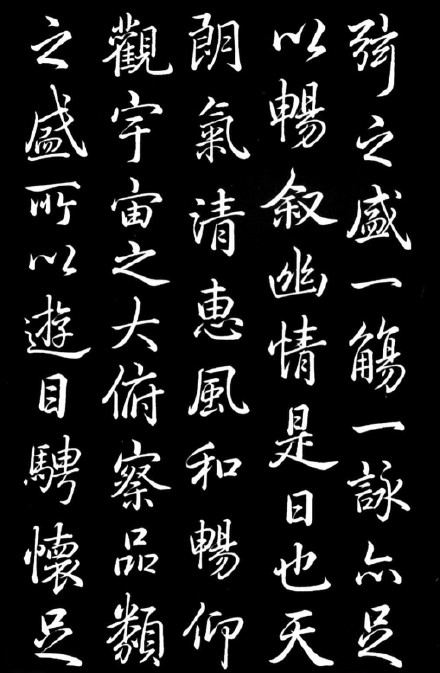 弦之盛一觴一詠亦足
以暢叙幽情是日也天
朗氣清惠風和暢仰
觀宇宙之大俯察品類
之盛所以遊目騁懷足